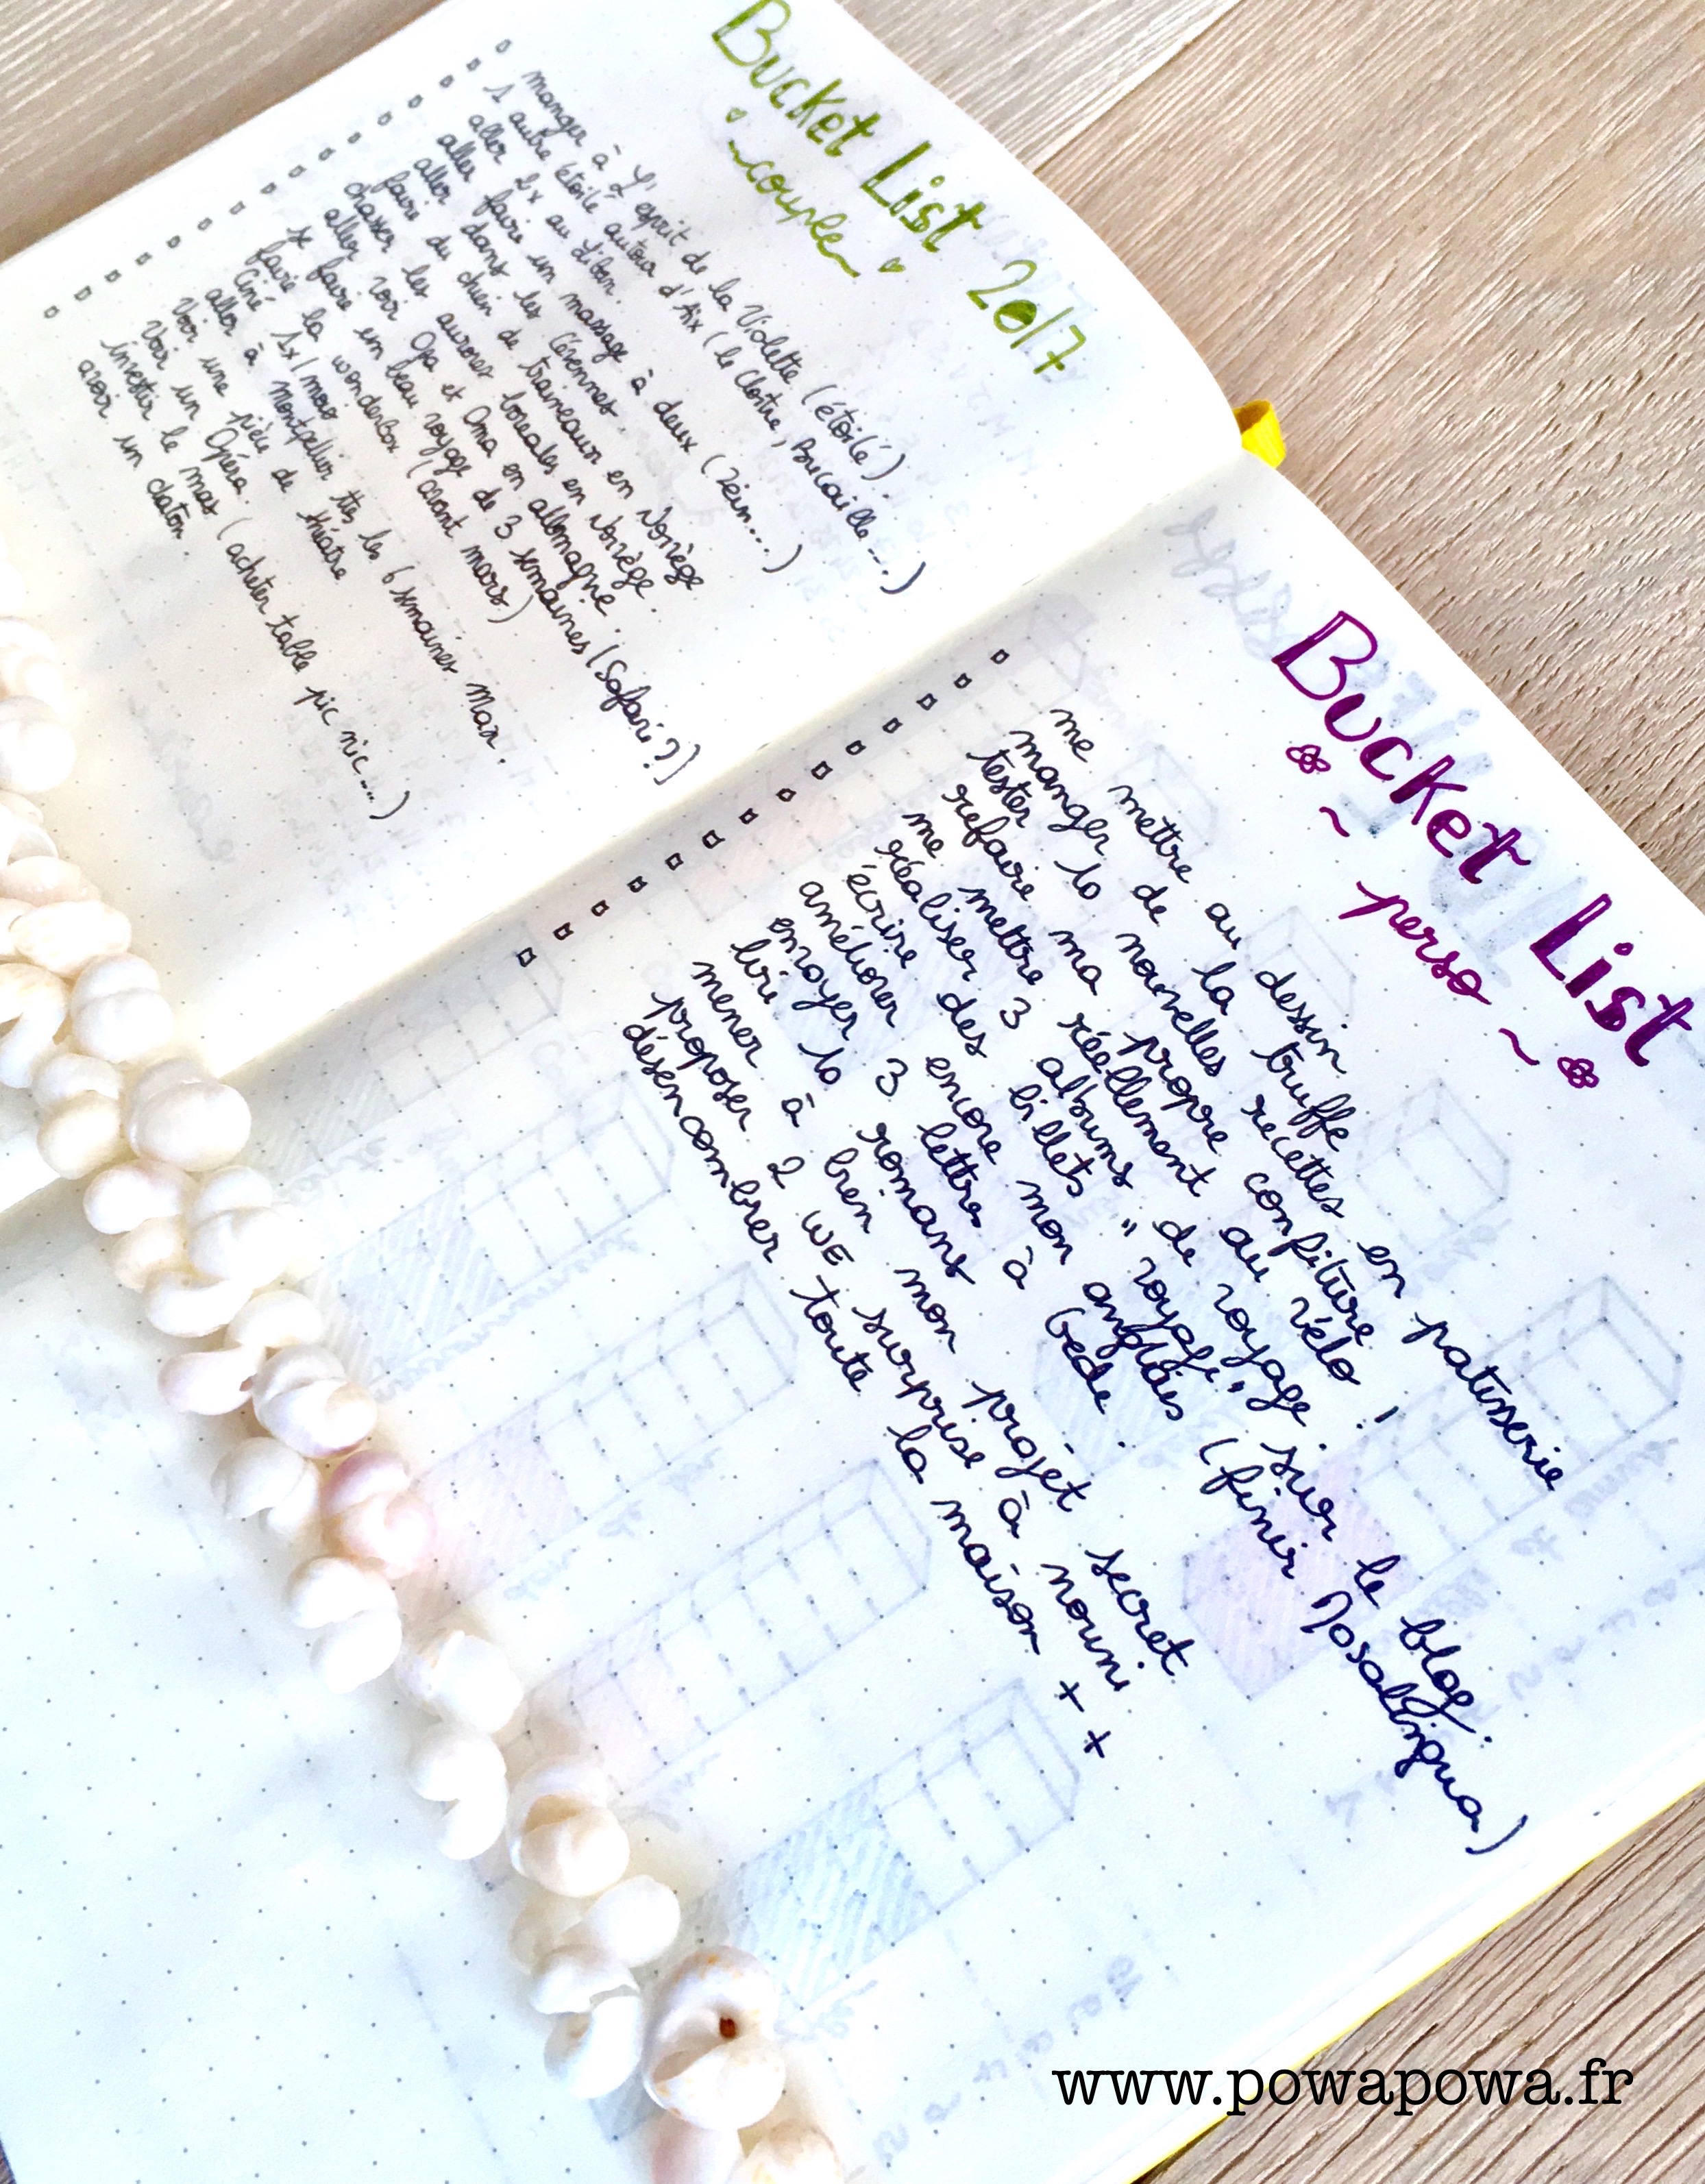 Bucket List 2017
~ couple ~
manger à l'esprit de la Violette (étoilé).
1 autre étoilé autour d'Aix (le Cloître, Bucaille...)
aller 2x au Liban.
aller faire un massage à deux (Zein...)
aller dans les Cévennes.
faire du chien de traineaux en Norvège
chasser les aurores boréales en Norvège.
aller voir Opa et Oma en allemagne.
se faire un beau voyage de 3 semaines (Safari?)
faire la wonderbox (avant mars)
Ciné 1x/mois
aller à montpellier ttes les 6 semaines max.
Voir une pièce de théatre
Voir un Opéra.
investir le mas (acheter table pic nic...)
avoir un chaton.
Bucket List
~ perso ~
me mettre au dessin
manger de la truffe
tester 10 nouvelles recettes en patisserie
refaire ma propre confiture !
me mettre réellement au vélo
réaliser 3 albums de voyage.
écrire des billets "voyage" sur le blog.
améliorer encore mon anglais (finir Mosalingua)
envoyer 3 lettres à Gede.
lire 10 romans
mener à bien mon projet secret
proposer 2 WE surprise à nouni
désencombrer toute la maison ++
www.powapowa.fr